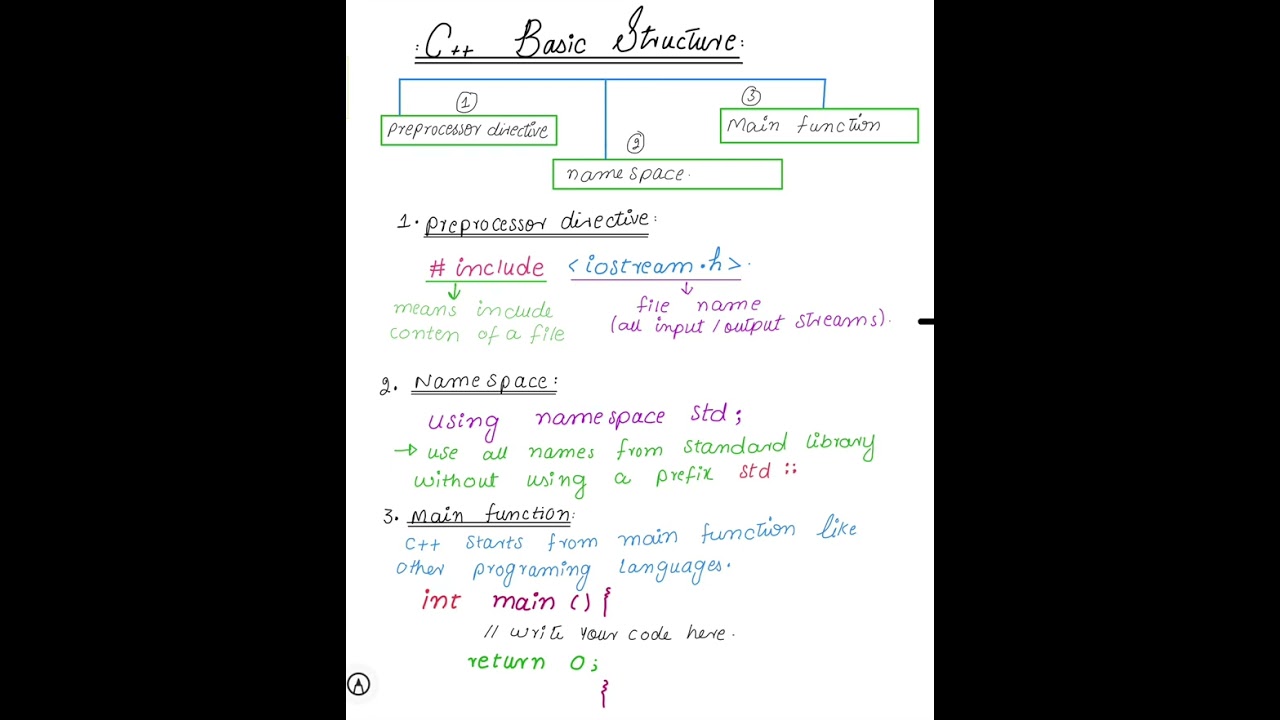 : C++ Basic Structure :
①
preprocessor directive
②
namespace.
③
Main function
1. preprocessor directive:
# include <iostream.h>.
means include
conten of a file
file name
(all input / output streams).
2. Namespace:
using namespace std;
→ use all names from standard library
without using a prefix std ::
3. Main function:
C++ starts from main function like
other programing languages.
int main () {
// write your code here.
return 0;
}
A